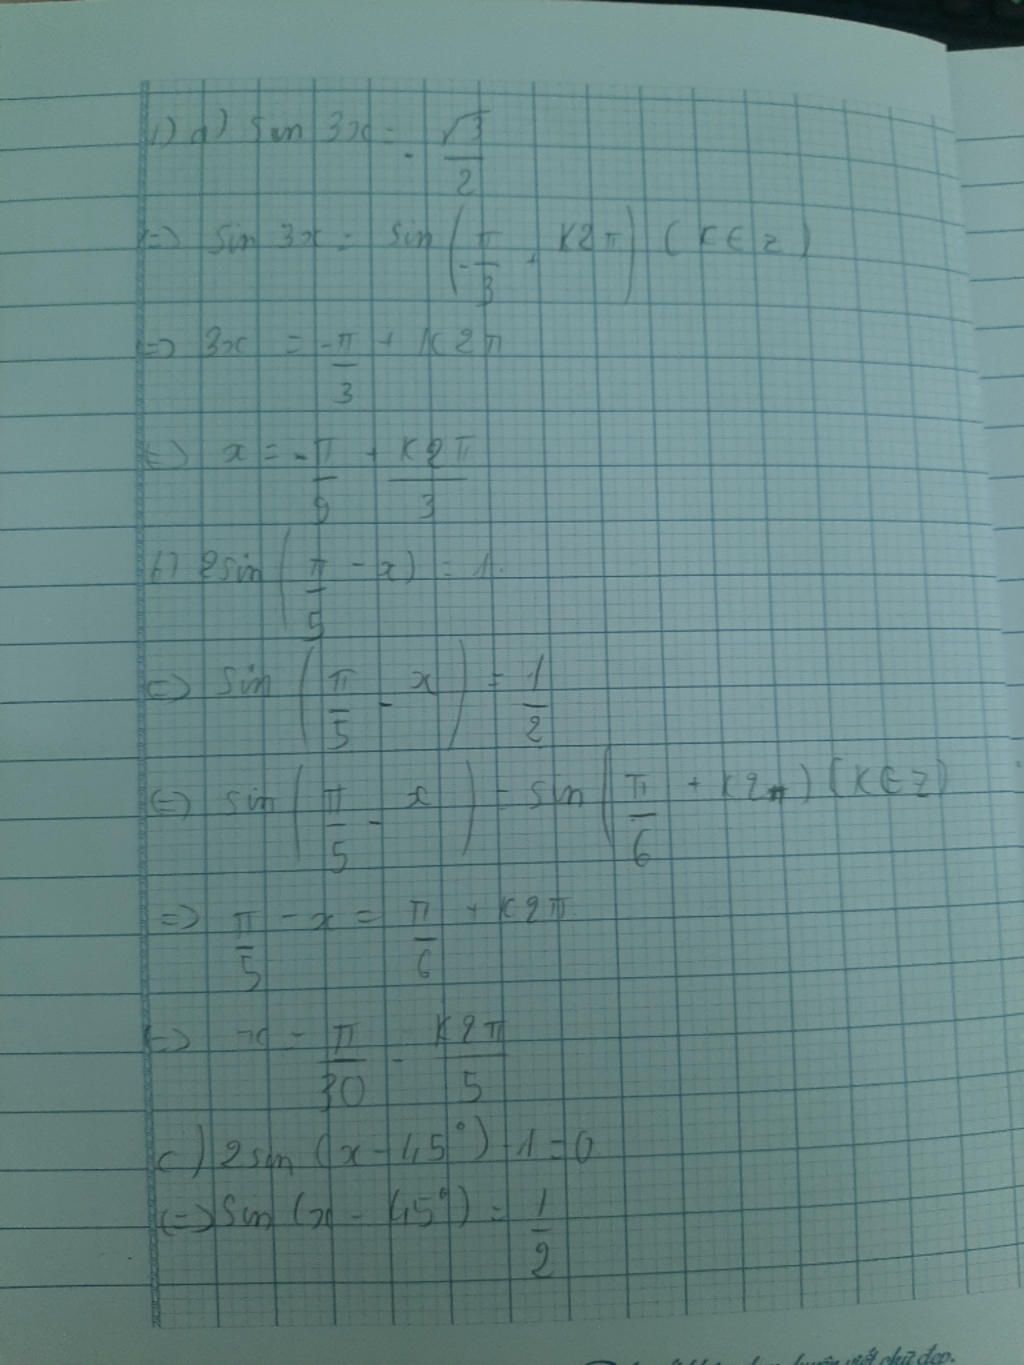 1) a) Sin 3x = -√3/2
=> Sin 3x = Sin (-π/3 + K2π) (K∈Z)
=> 3x = -π/3 + K2π
<=> x = -π/9 + K2π/3
b) 2Sin (π/5 - x) = 1.
<=> Sin (π/5 - x) = 1/2
<=> Sin (π/5 - x) = Sin (π/6 + K2π) (K∈Z)
=> π/5 - x = π/6 + K2π
<=> x = π/30 - K2π/5
c) 2sin (x - 45°) - 1 = 0
<=> Sin (x - 45°) = 1/2